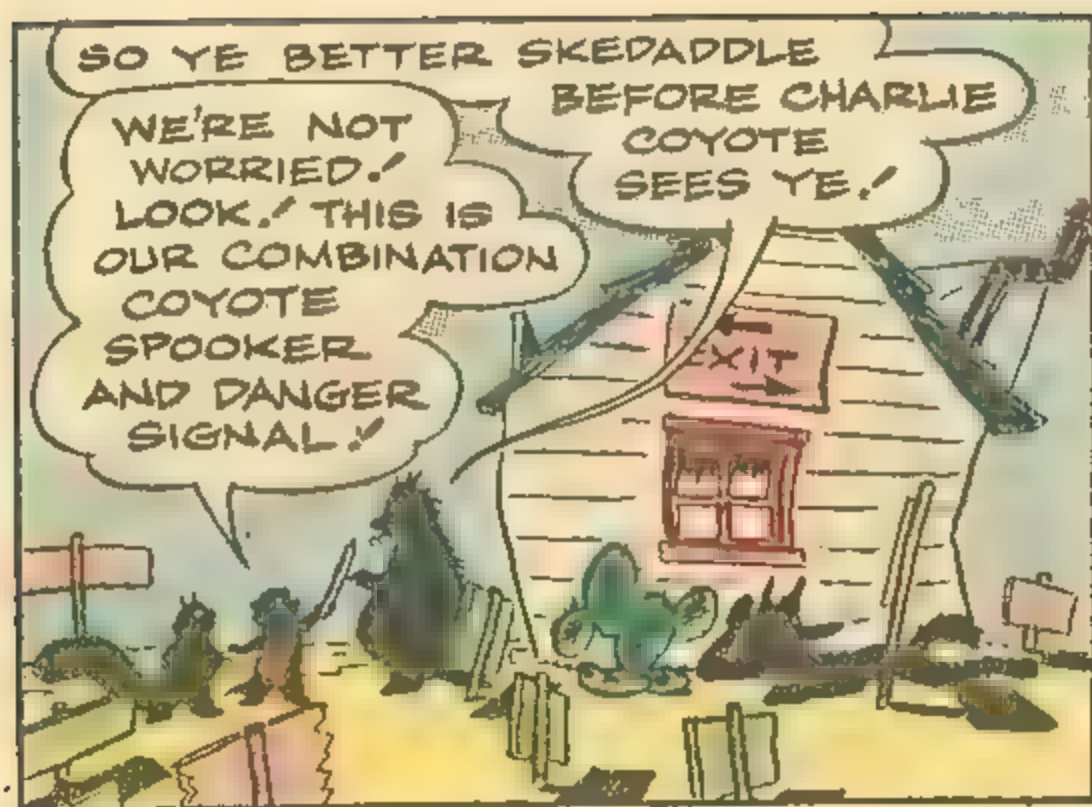 SO YE BETTER SKEDADDLE
BEFORE CHARLIE
COYOTE
SEES YE!
WE'RE NOT
WORRIED!
LOOK! THIS IS
OUR COMBINATION
COYOTE
SPOOKER
AND DANGER
SIGNAL!
EXIT